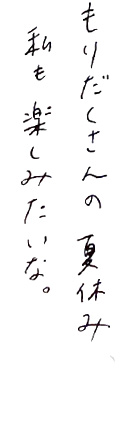 もりだくさんの 夏休み
私も楽しみたいな。